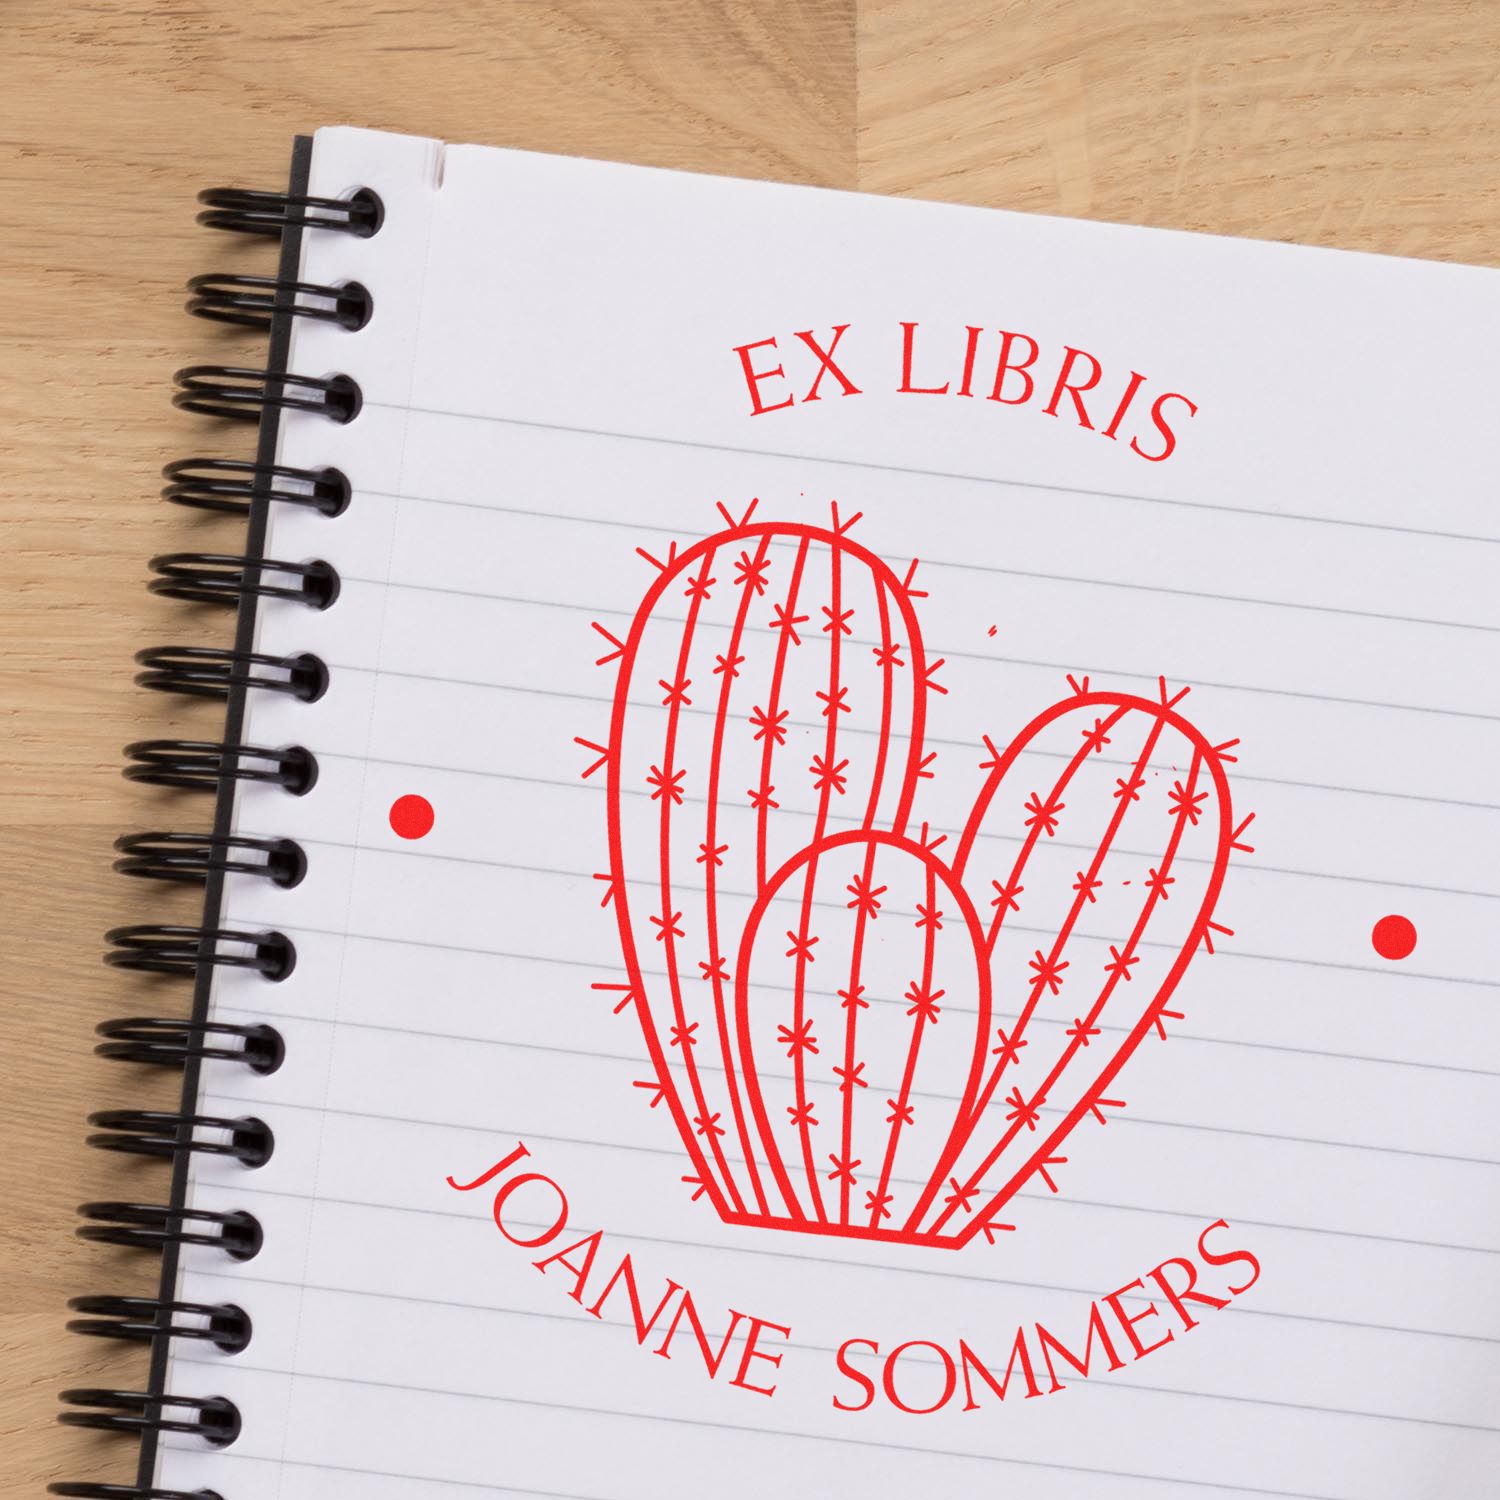 EX LIBRIS
JOANNE SOMMERS